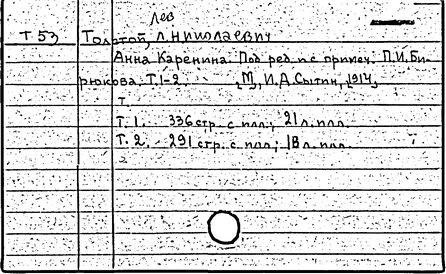 Лев
Т 53 Толстой, Л. Николаевич
Анна Каренина. Под ред. и с примеч. П.И. Би-
рюкова. Т. 1-2. М., И.Д. Сытин, 1914.
Т.
Т. 1. 336 стр. с илл.; 21 л. илл.
Т. 2. 291 стр. с илл.; 18 л. илл.